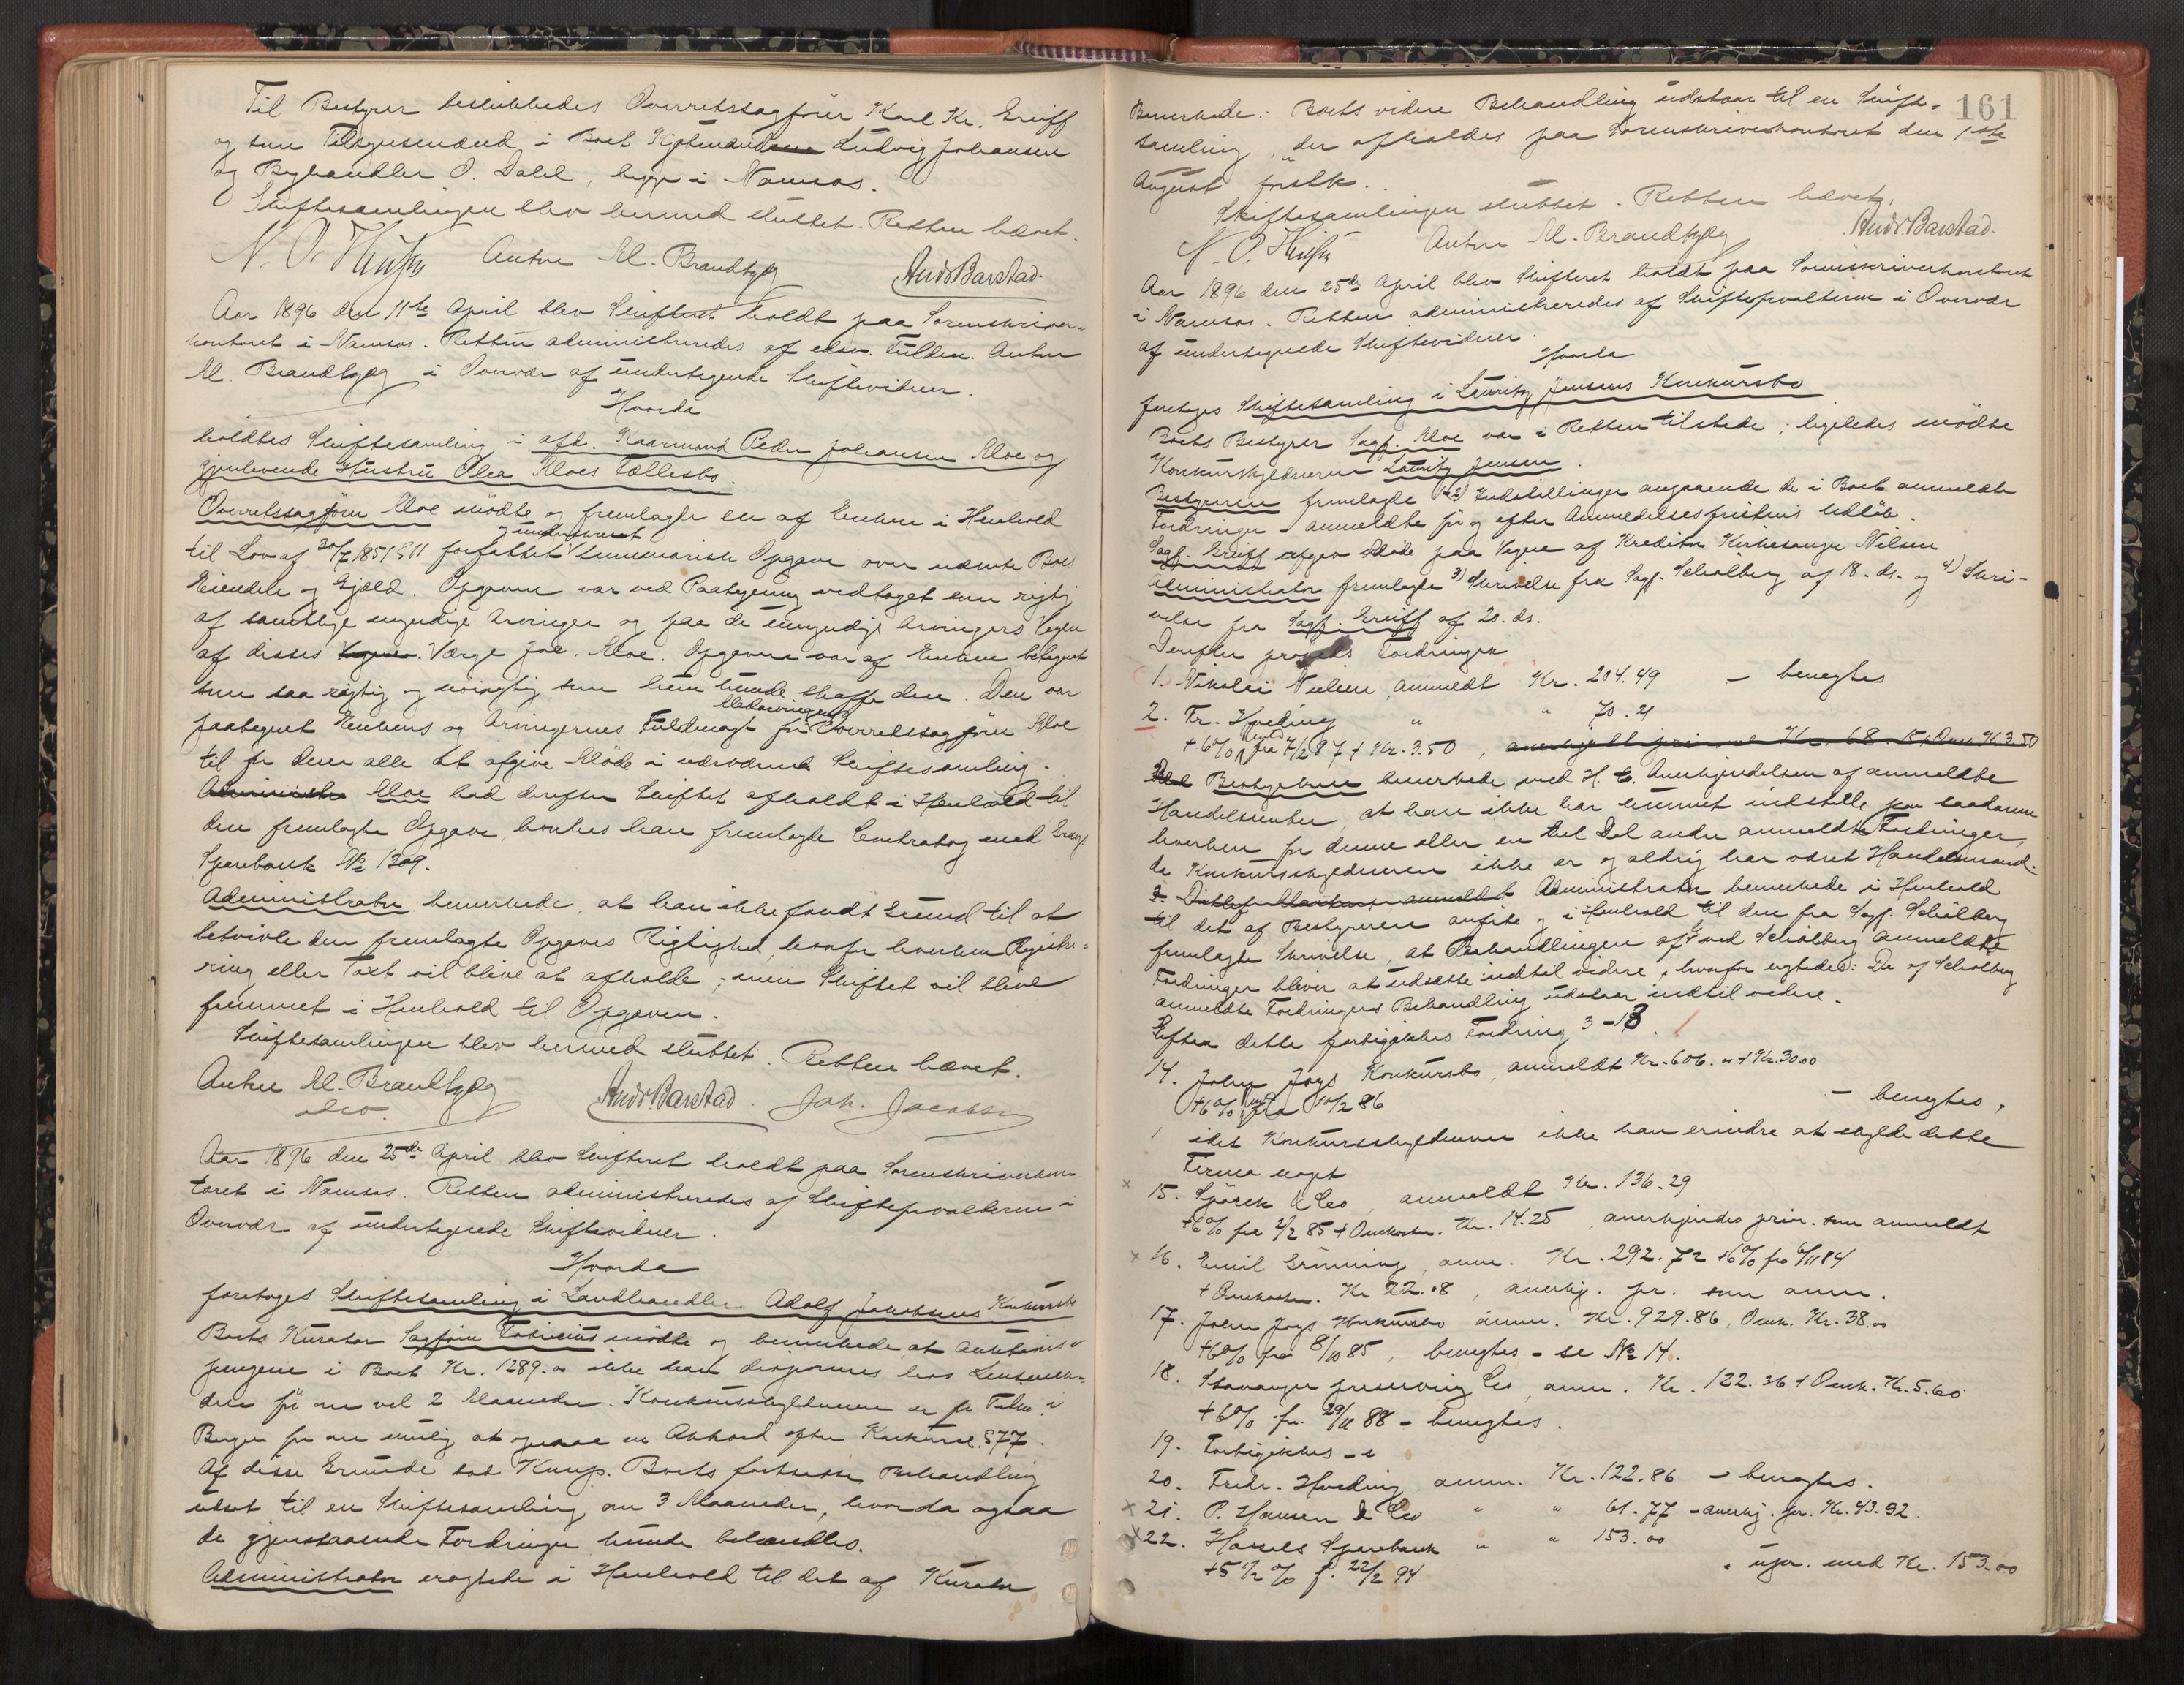 Til Bestyrer beskikkedes Overretssagfører Karl Kr. Greiff
og som Tilsynsmænd i Boet Kjøbmændene Ludvig Johansen
og Boghandler O. Dahl, begge i Namsos.
Skiftesamlingen blev hermed sluttet. Retten hævet.
Anton M. Brandtzæg Andr Barstad.
Aar 1896 den 11te April blev Skifteret holdt paa Sorenskriver-
kontoret i Namsos. Retten administreredes af edsv. Fuldm. Anton
M. Brandtzæg i Overvær af undertegnede Skiftevidner.
Hvorda
holdtes Skiftesamling i afd. Kaarmand Peder Johansen Moe og
gjenlevende Hustru Olea Moes Fællesbo.
Overretssagfører Moe mødte og fremlagde en af Enken i Henhold
og underskrevet
til Lov af 30/7 1851 § 11 forfattet summarisk Opgave over nævnte Boes
Eiendele og Gjæld. Opgaven var ved Paategning vedtaget som rigtig
af samtlige myndige Arvinger og paa de umyndige Arvingers Vegne
af disses Vegne. Værge Joh. Moe. Opgaven var af Enken betegnet
som saa rigtig og nøiagtig som hun kunde skaffe den. Den var
Medarvingen
paategnet Enkens og Arvingernes Fuldmagt for Overretssagfører Moe
til for dem alle at afgive Møde i nærværende Skiftesamling.
Administr Moe bad derefter Skiftet afholdt i Henhold til
den fremlagte Opgave, hvorhos han fremlagde Contrabog med
Sparebank No 1309.
Administrator bemerkede, at han ikke fandt Grund til at
betvivle den fremlagte Opgaves Rigtighed, hvorfor hverken Registre-
ring eller Taxt vil blive at afholde; men Skiftet vil blive
fremmet i Henhold til Opgaven.
Skiftesamlingen blev hermed sluttet. Retten hævet.
Anton M. Brandtzæg Andr Barstad. Joh. Jacobsen
edsv.
Aar 1896 den 25de April blev Skifteret holdt paa Sorenskriverkon-
toret i Namsos. Retten administreredes af Skifteforvalteren i
Overvær af undertegnede Skiftevidner.
Hvorda
foretoges Skiftesamling i Landhandler Adolf Jakobsens Konkursbo
Boets Kurator Sagfører Fabricius mødte og bemerkede, at Auktions-
pengene i Boet Kr. 1289.00 ikke kan disponeres hos
den før om vel 2 Maaneder. Konkursskyldneren er for Tiden i
Bergen for om mulig at opnaa en Akkord efter Konkursl. § 77.
Af disse Grunde bad Komp. Boets fortsatte Behandling
udsat til en Skiftesamling om 3 Maaneder, hvorda ogsaa
de gjenstaaende Fordringer kunde behandles.
Administrator eragtede i Henhold til det af Kurator
161
Bemerkede: Boets videre Behandling udstaar til en Skifte-
samling, der afholdes paa Sorenskriverkontoret den 1ste
August førstk.
Skiftesamlingen sluttet. Retten hævet.
Anton M. Brandtzæg Andr Barstad.
Aar 1896 den 25de April blev Skifteret holdt paa Sorenskriverkontoret
i Namsos. Retten administreredes af Skifteforvalteren i Overvær
af undertegnede Skiftevidner.
Hvorda
foretoges Skiftesamling i Lauritz Jensens Konkursbo
Boets Bestyrer Sagf. Moe var i Retten tilstede; ligeledes mødte
Konkursskyldneren Lauritz Jensen.
Bestyreren fremlagde 1-2) Indstillinger angaaende de i Boet anmeldte
Fordringer - anmeldte før og efter Anmeldelsesfristens Udløb.
Sagf. Greiff afgav Møde paa Vegne af Kreditor Kirkesanger Nilsen
Administrator fremlagde 3) Skrivelse fra Sagf. Schølberg af 18. ds. og 4) Skri-
velse fra Sagf. Greiff af 20. ds.
Derefter prøvedes Fordringer
1. Nikolai Nielsen, anmeldt Kr. 204.49 - benegtes
2. Fr. Hveding " " 70.21
+ 6% fra 7/2 87 + Kr. 3.50,
Bestyreren bemerkede med H. t. Anerkjendelsen af anmeldte
Handelsrenter, at han ikke har kunnet indstille paa saadanne
hverken for denne eller en Del andre anmeldte Fordringer,
da Konkursskyldneren ikke er og aldrig har været Handelsmand.
Administrator bemerkede i Henhold
til det af Bestyreren anførte og i Henhold til den fra Sagf. Schølberg
fremlagte Skrivelse, at Behandlingen af de ved Schølberg anmeldte
Fordringer bliver at udsætte indtil videre, hvorfor eragtedes: De af Schølberg
anmeldte Fordringers Behandling udstaar indtil videre.
Efter dette forbigikkes Fordring 3-13.
14. John Jogs Konkursbo, anmeldt Kr. 606. " + Kr. 30.00
+ 6% fra 10/2 86 - benegtes,
idet Konkursskyldneren ikke kan erindre at skylde dette
Firma noget
15. Spørck & Co, anmeldt Kr. 136.29
+ 6% fra 2/2 85 + Omkostn. Kr. 14.25, anerkjendes prior. som anmeldt
16. Emil Grønning, anm. Kr. 292.72 + 6% fra 6/11 84
+ Omkostn. Kr 22.08, anerkj. pr. som anm.
17. John Jogs Konkursbo anm. Kr. 929.86, Omk. Kr. 38.00
+ 6% fra 8/10 85, benegtes - se No 14.
18. Stavanger preserving Co, anm. Kr. 122.36 + Omk. Kr. 5.60
+ 6% fr. 29/11 88 - benegtes.
19. Forbigikkes
20. Fredr. Hveding anm. Kr. 122.86 - benegtes.
21. P. Hansen & Co " " 61.77 - anerkj. pr. Kr. 43.92.
22. Hassels Sparebank " " 153.00
+ 5 1/2 % f. 22/2 94 " upr. med Kr. 153.00